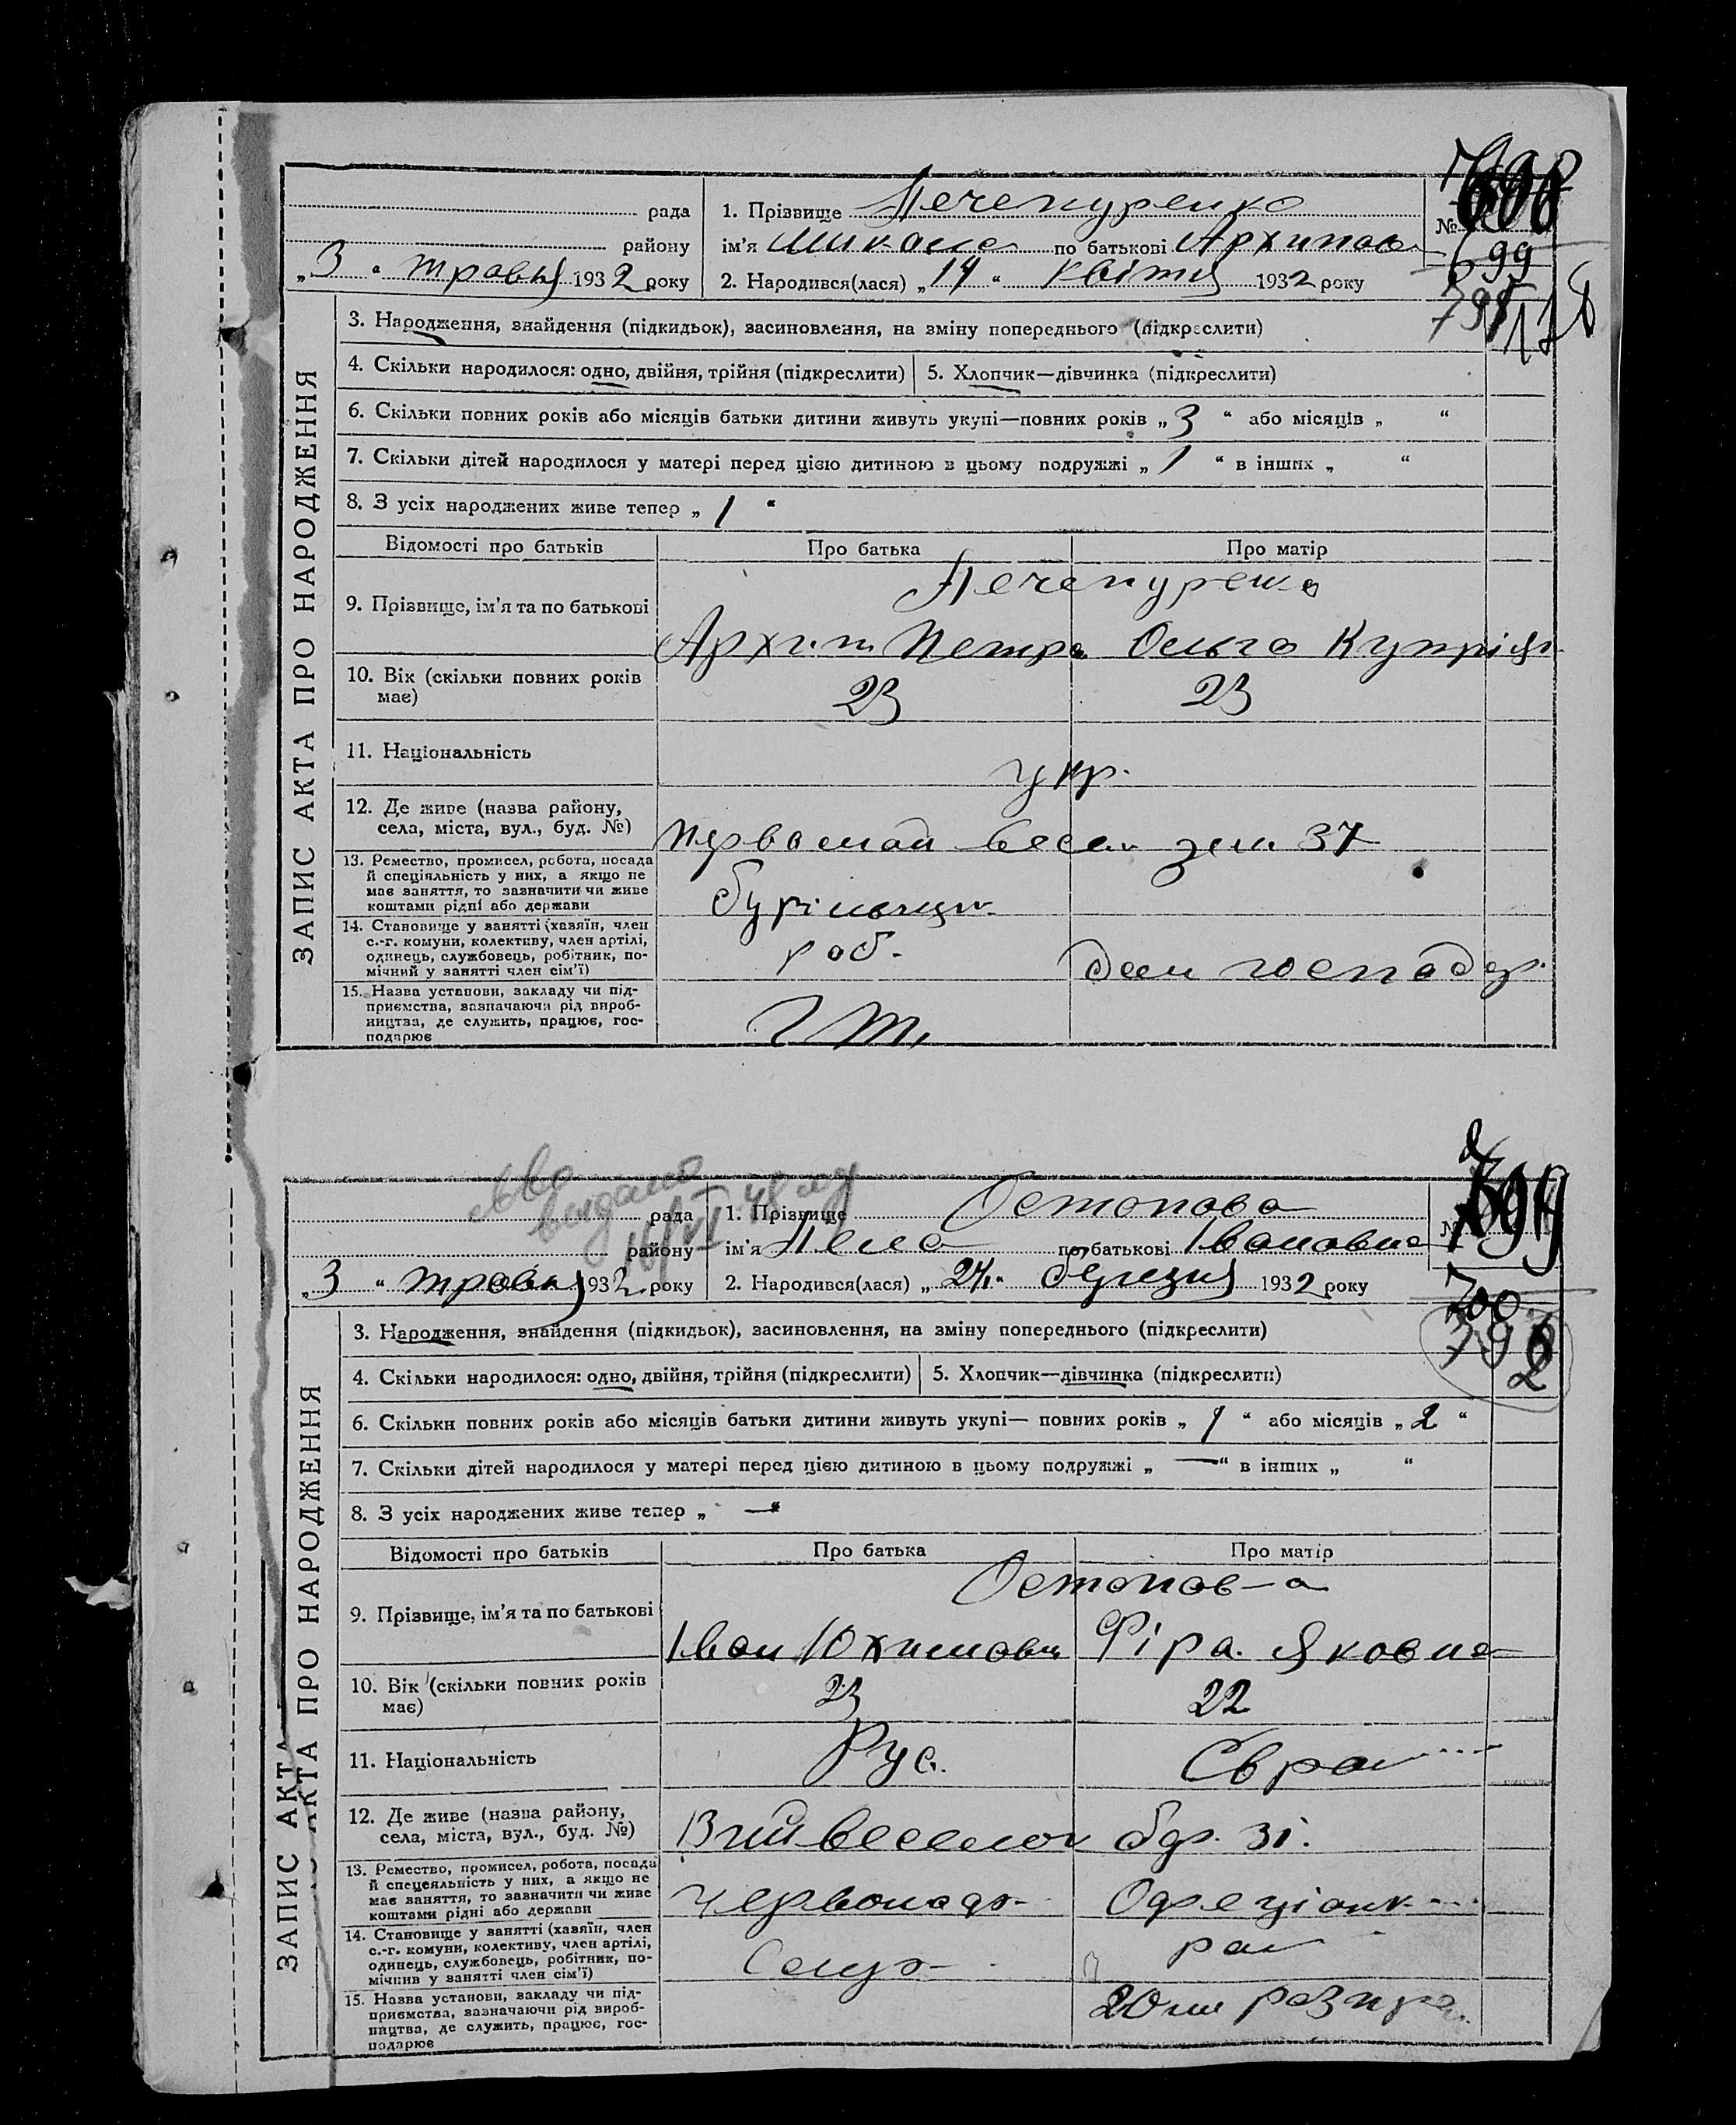 ЗАПИС АКТА ПРО НАРОДЖЕННЯ
рада
району
„3“ травня 1932 року
1. Прізвище Нечепуренко
ім'я Микола по батькові Архипов
2. Народився(лася) „14“ квітня 1932 року
№
699
3. Народження, знайдення (підкидьок), засиновлення, на зміну попереднього (підкреслити)
4. Скільки народилося: одно, двійня, трійня (підкреслити)
5. Хлопчик—дівчинка (підкреслити)
6. Скільки повних років або місяців батьки дитини живуть укупі—повних років „3“ або місяців „ “
7. Скільки дітей народилося у матері перед цією дитиною в цьому подружжі „1“ в інших „ “
8. З усіх народжених живе тепер „1“
Відомості про батьків Про батька Про матір
9. Прізвище, ім'я та по батькові
Нечепуренко
Архип Петро Ольга Купріян
10. Вік (скільки повних років
має)
23 23
11. Національність
укр.
12. Де живе (назва району,
села, міста, вул., буд. №)
Первомай весел зем 37
13. Ремество, промисел, робота, посада
й спеціяльність у них, а якщо не
має заняття, то зазначити чи живе
коштами рідні або держави
бурільщик
14. Становище у занятті (хазяїн, член
с.-г. комуни, колективу, член артілі,
одинець, службовець, робітник, по-
мічний у занятті член сім'ї)
роб. дом господар.
15. Назва установи, закладу чи під-
приємства, зазначаючи рід вироб-
ництва, де служить, працює, гос-
подарює
ЗАПИС АКТА
АКТА ПРО НАРОДЖЕННЯ
видано
16/VI 48
рада
району
„3“ травня 1932 року
1. Прізвище Остапова
ім'я Нела по батькові Івановна
2. Народився(лася) „24“ березня 1932 року
№
700
3. Народження, знайдення (підкидьок), засиновлення, на зміну попереднього (підкреслити)
4. Скільки народилося: одно, двійня, трійня (підкреслити)
5. Хлопчик—дівчинка (підкреслити)
6. Скільки повних років або місяців батьки дитини живуть укупі— повних років „1“ або місяців „2“
7. Скільки дітей народилося у матері перед цією дитиною в цьому подружжі „—“ в інших „ “
8. З усіх народжених живе тепер „—“
Відомості про батьків Про батька Про матір
9. Прізвище, ім'я та по батькові
Остапов-а
Іван Юхимович Фіра Яковна
10. Вік (скільки повних років
має)
23 22
11. Національність
Рус. Євр
12. Де живе (назва району,
села, міста, вул., буд. №)
веселой бдр. 31.
13. Ремество, промисел, робота, посада
й спецеяльність у них, а якщо не
має заняття, то зазначити чи живе
коштами рідні або держави
Червоноар
14. Становище у занятті (хазяїн, член
с.-г. комуни, колективу, член артілі,
одинець, службовець, робітник, по-
мічнив у занятті член сім'ї)
Служ
15. Назва установи, закладу чи під-
приємства, зазначаючи рід вироб-
ництва, де служить, працює, гос-
подарює